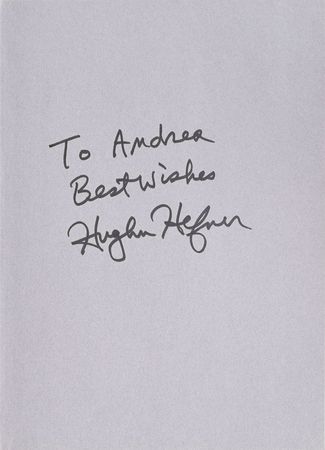 To Andrea
Best Wishes
Hugh M Hefner